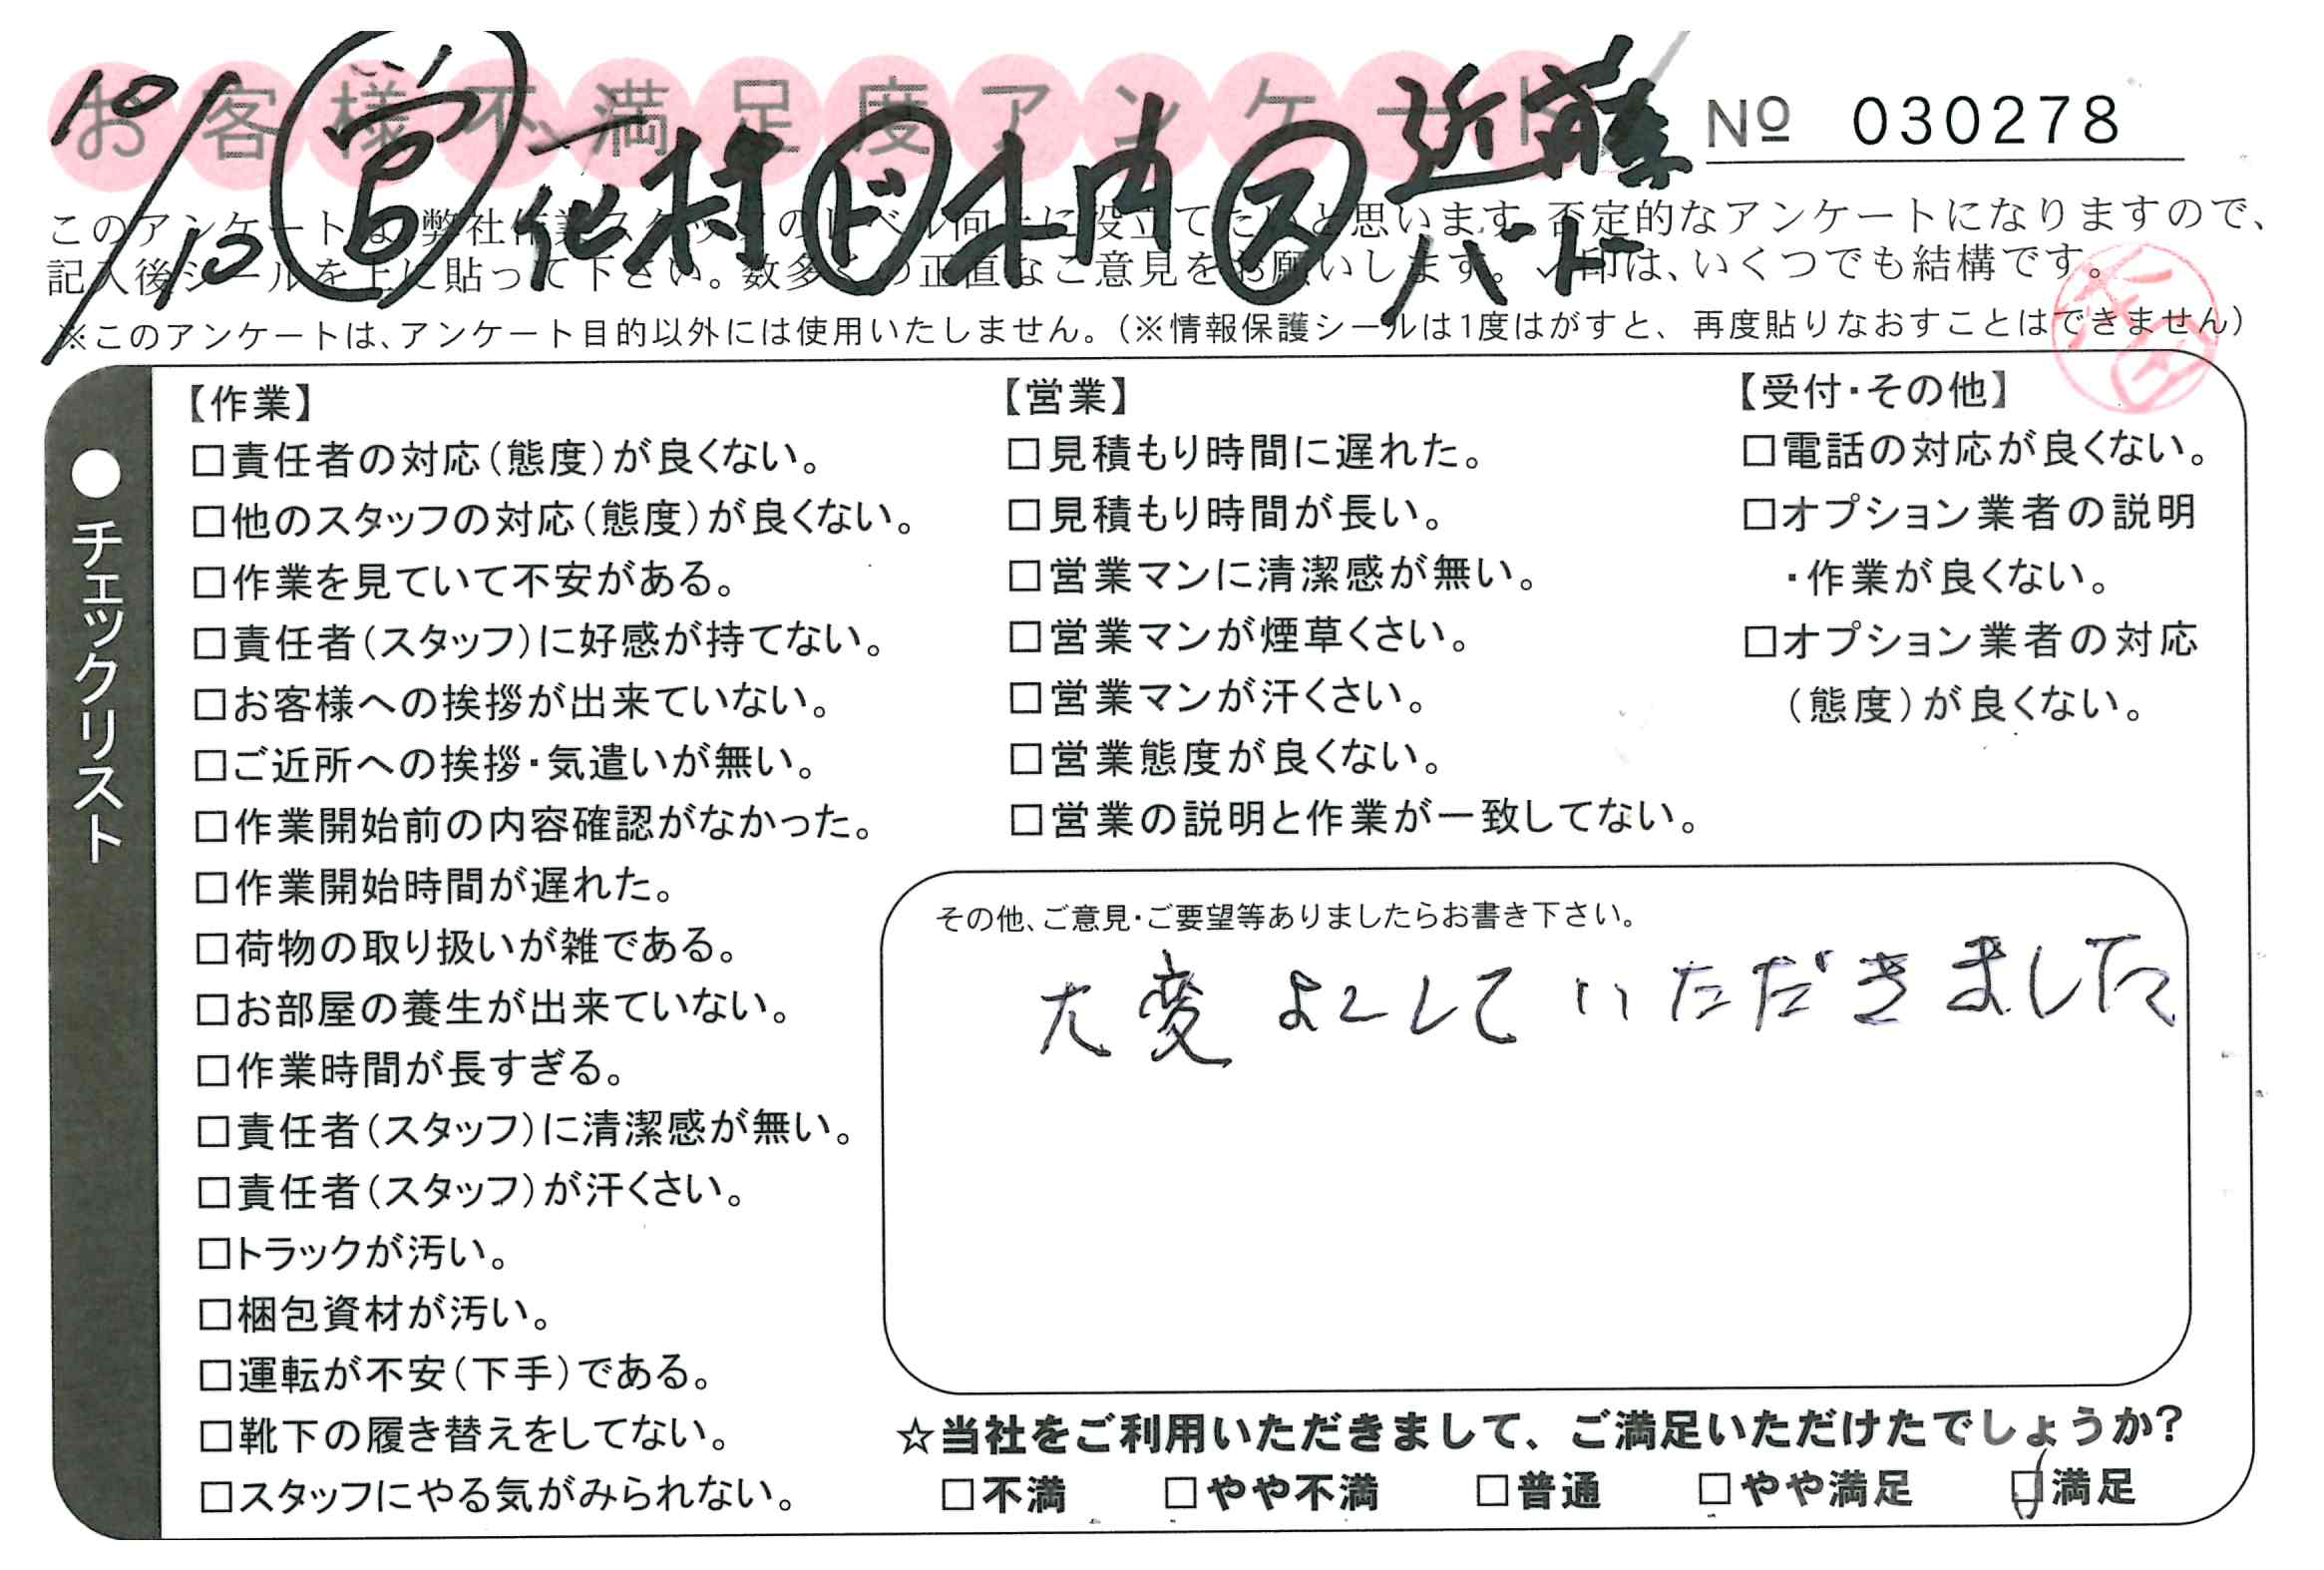 お客様不満足度アンケート
№ 030278
10/10 営 ド 木内 ス 近藤
バード
このアンケートは、弊社作業スタッフのレベル向上に役立てたいと思います。否定的なアンケートになりますので、
記入後シールを上に貼って下さい。数多くの正直なご意見をお願いします。✓印は、いくつでも結構です。
※このアンケートは、アンケート目的以外には使用いたしません。(※情報保護シールは1度はがすと、再度貼りなおすことはできません)
●チェックリスト
【作業】
□責任者の対応(態度)が良くない。
□他のスタッフの対応(態度)が良くない。
□作業を見ていて不安がある。
□責任者(スタッフ)に好感が持てない。
□お客様への挨拶が出来ていない。
□ご近所への挨拶・気遣いが無い。
□作業開始前の内容確認がなかった。
□作業開始時間が遅れた。
□荷物の取り扱いが雑である。
□お部屋の養生が出来ていない。
□作業時間が長すぎる。
□責任者(スタッフ)に清潔感が無い。
□責任者(スタッフ)が汗くさい。
□トラックが汚い。
□梱包資材が汚い。
□運転が不安(下手)である。
□靴下の履き替えをしてない。
□スタッフにやる気がみられない。
【営業】
□見積もり時間に遅れた。
□見積もり時間が長い。
□営業マンに清潔感が無い。
□営業マンが煙草くさい。
□営業マンが汗くさい。
□営業態度が良くない。
□営業の説明と作業が一致してない。
【受付・その他】
□電話の対応が良くない。
□オプション業者の説明
・作業が良くない。
□オプション業者の対応
(態度)が良くない。
その他、ご意見・ご要望等ありましたらお書き下さい。
大変よくしていただきました
☆当社をご利用いただきまして、ご満足いただけたでしょうか?
□不満 □やや不満 □普通 □やや満足 ☑満足